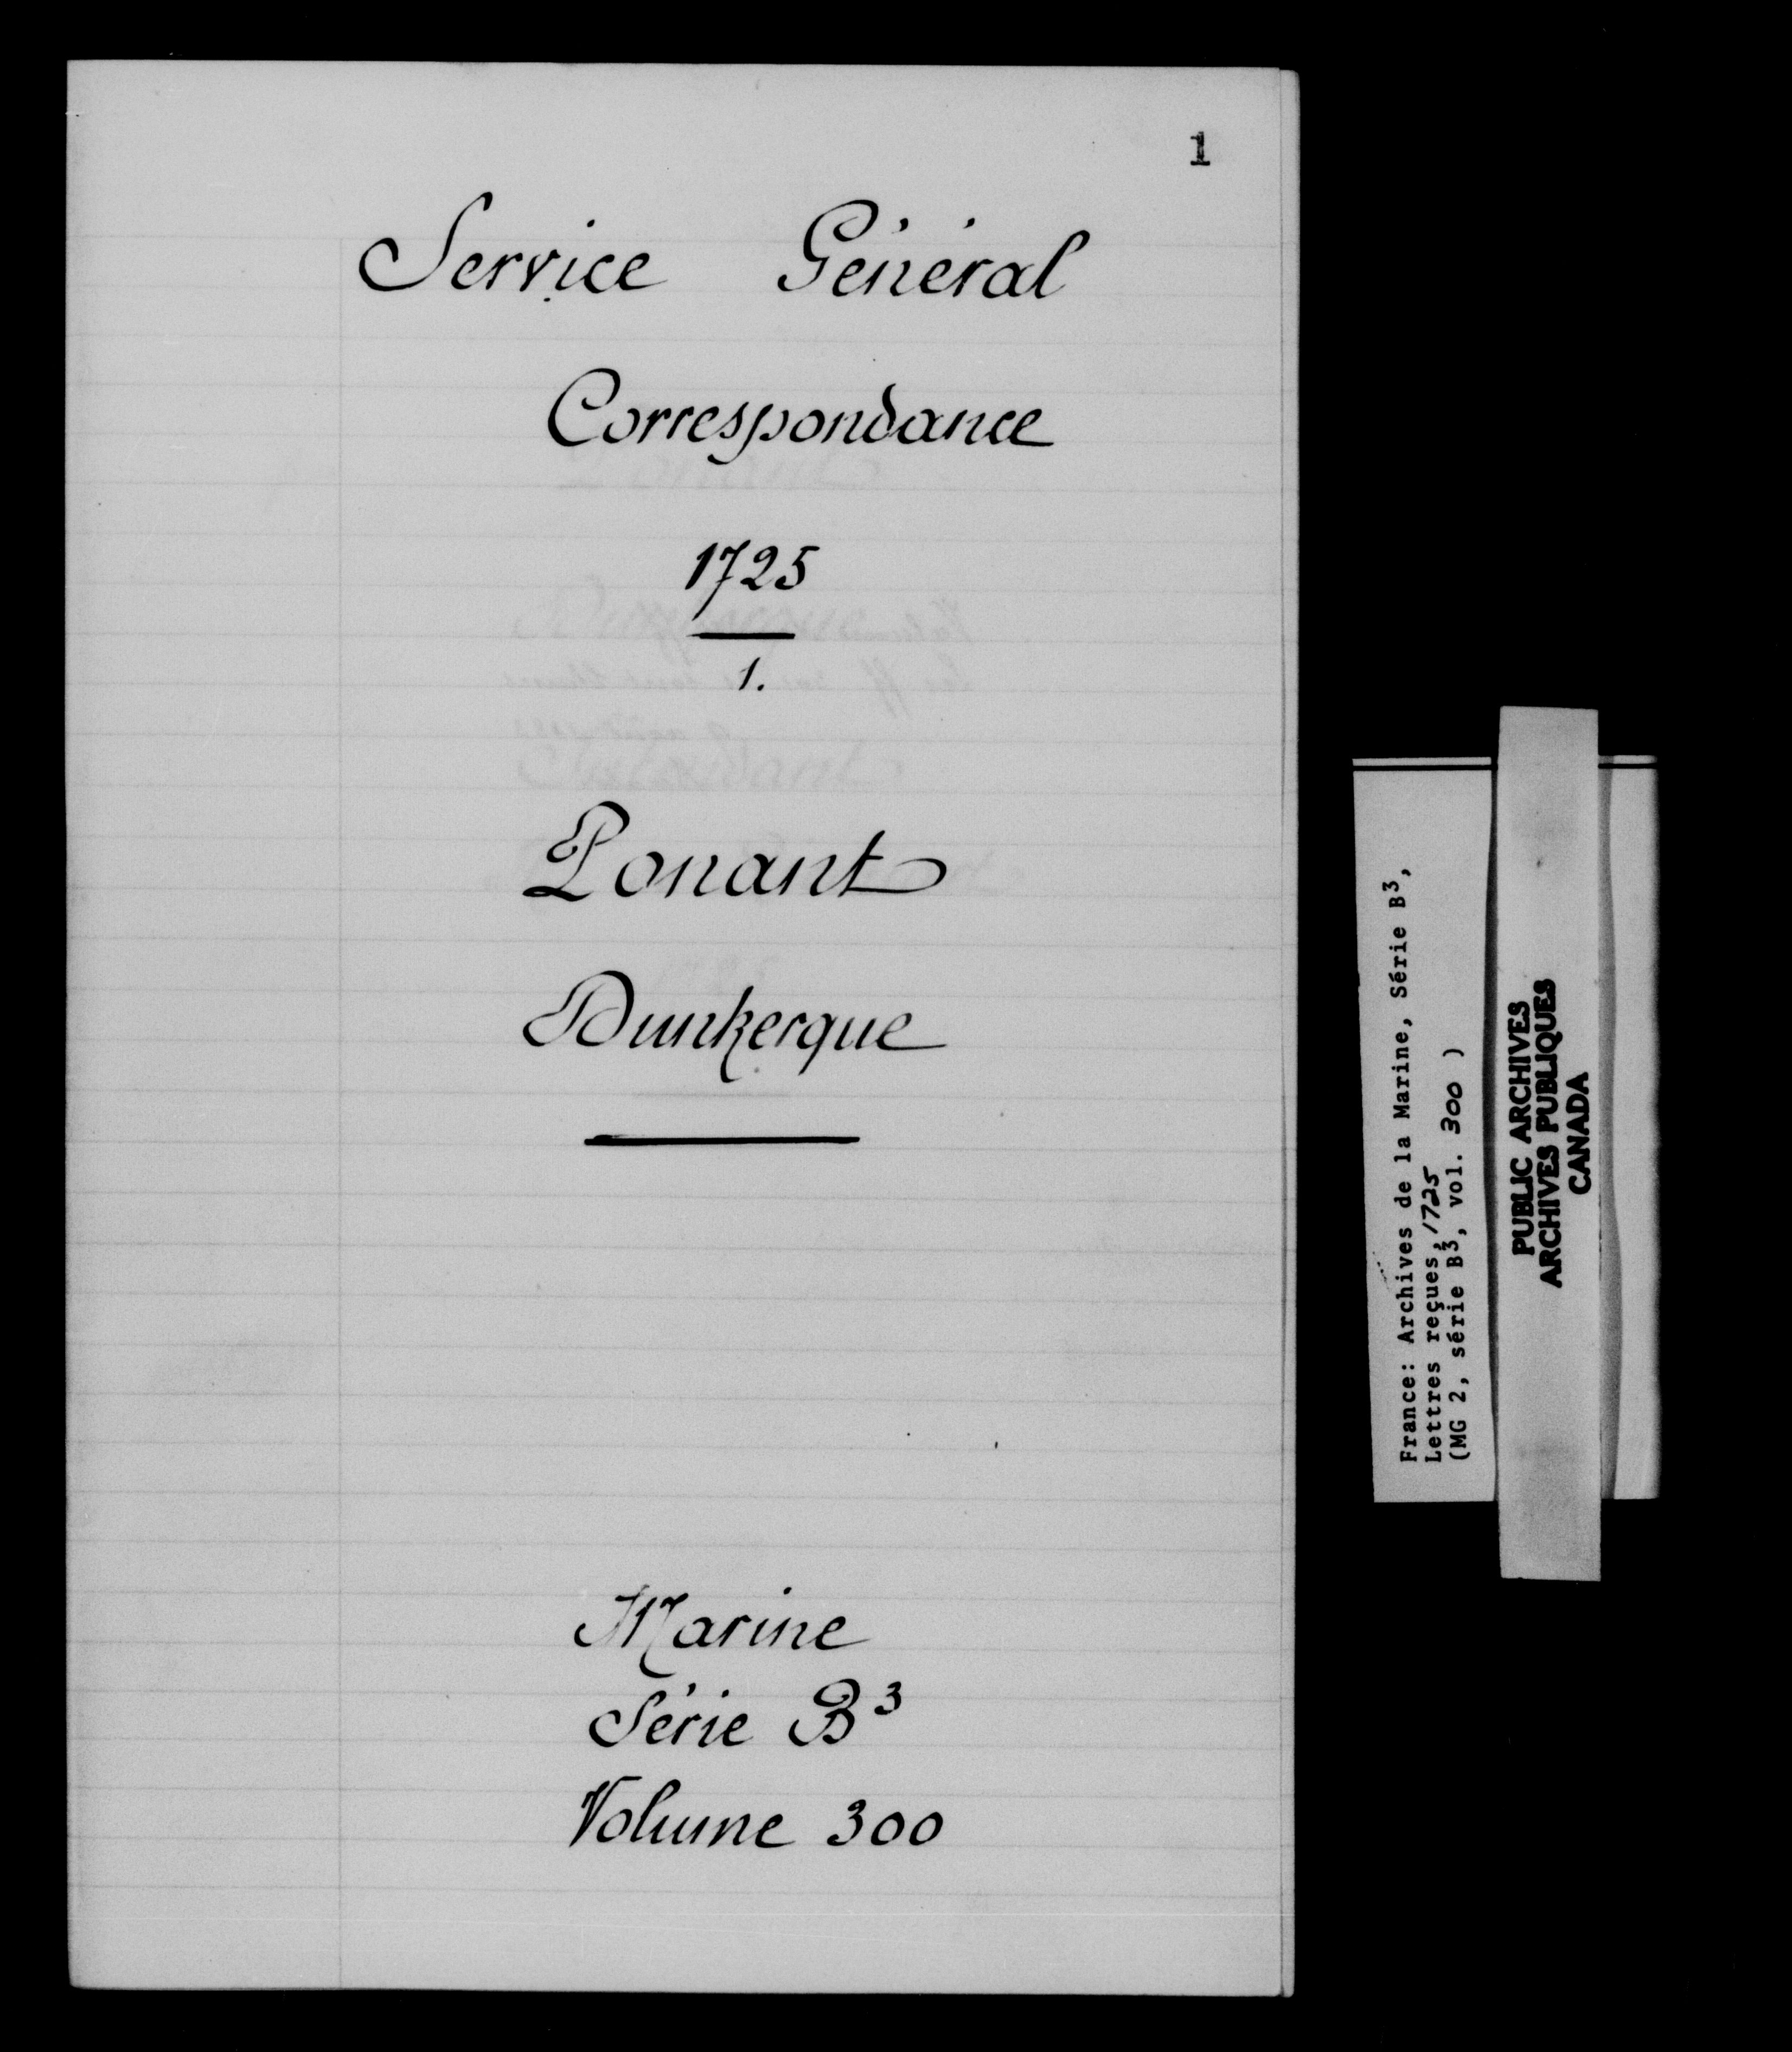 1
Service Général
Correspondance
1725
1.
Ponant
Dunkerque
Marine
Série B³
Volume 300
France: Archives de la Marine, Série B³,
Lettres reçues, 1725
(MG 2, série B³, vol. 300 )
PUBLIC ARCHIVES
ARCHIVES PUBLIQUES
CANADA